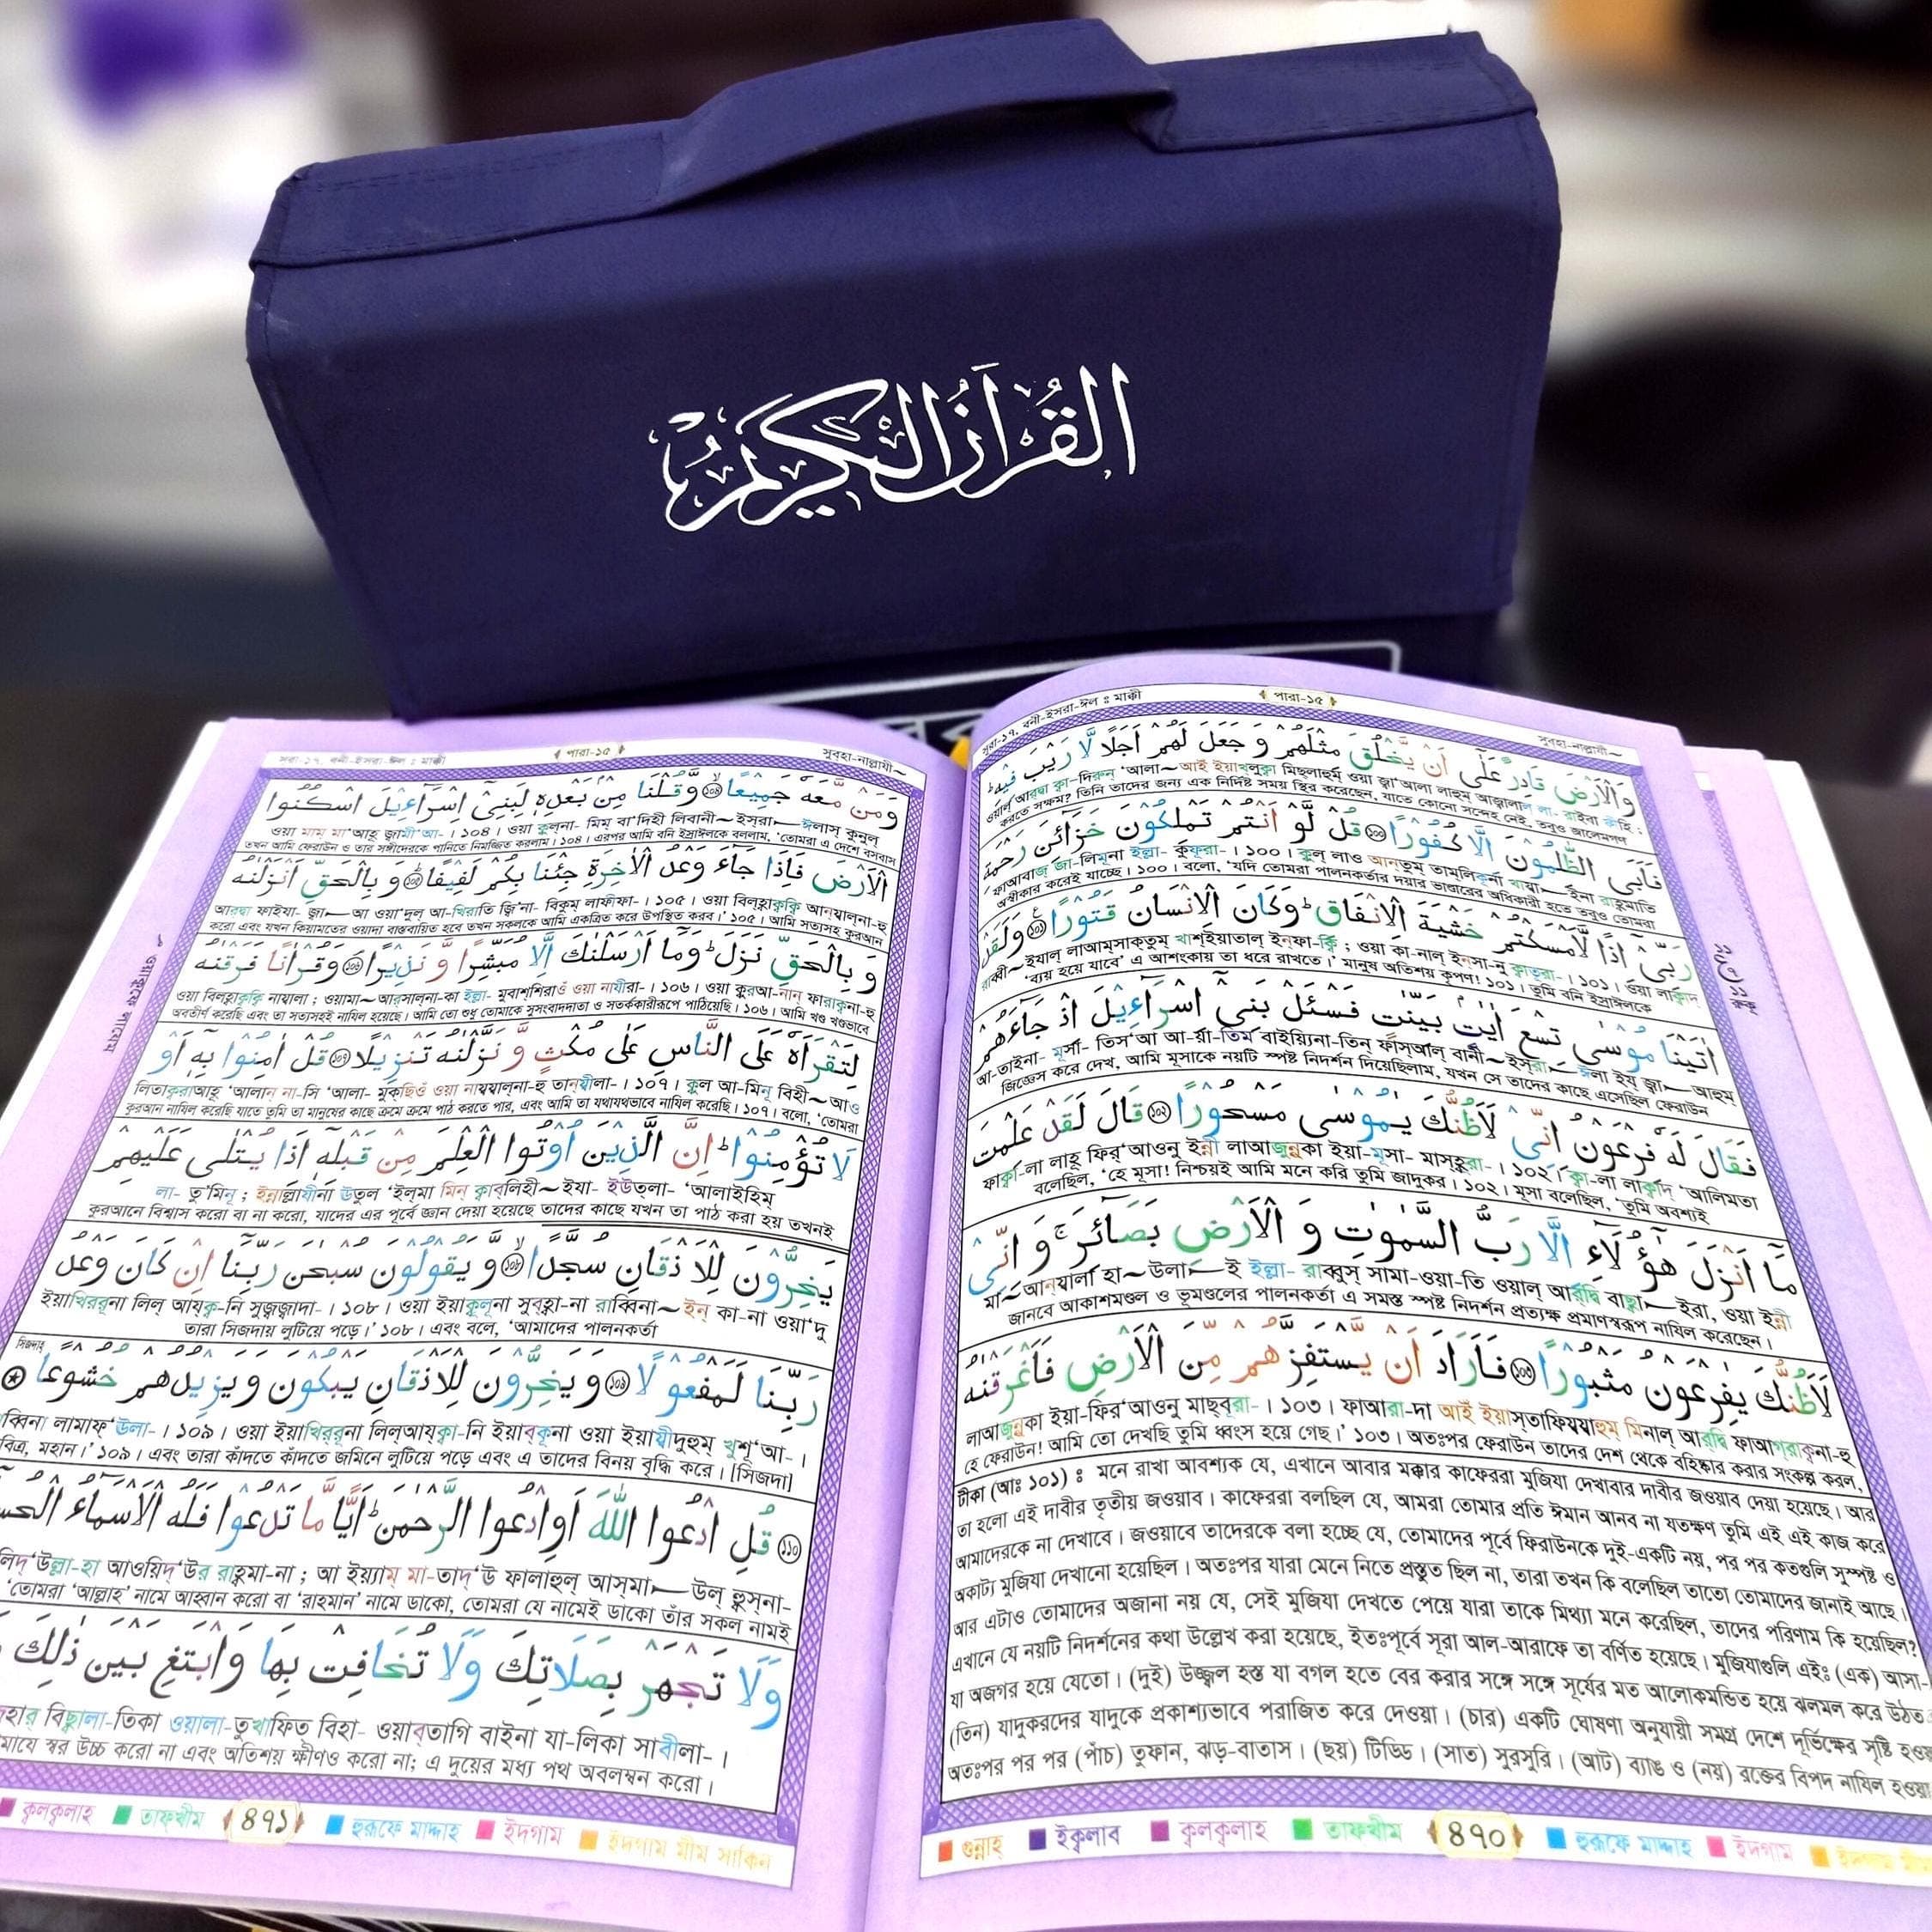 القرآن الكريم
সূরা-১৭. বনী-ইসরা-ঈল : মাক্কী
পারা-১৫
সুবহা-নাল্লাযী~
وَالْاَرْضَ قَادِرٌ عَلٰٓى اَنْ يَّخْلُقَ مِثْلَهُمْ وَ جَعَلَ لَهُمْ اَجَلًا لَّا رَيْبَ فِيْهِ ؕ
ওয়াল্ আরদ্বা ক্বা-দিরুন্ 'আলা~আইঁ ইয়াখলুক্বা মিছ্লাহুম্ ওয়া জ্বা'আলা লাহুম্ আজ্বালাল্ লা- রাইবা ফীহি ;
করতে সক্ষম? তিনি তাদের জন্য এক নির্দিষ্ট সময় স্থির করেছেন, যাতে কোনো সন্দেহ নেই, তবুও জালেমগণ
فَاَبَى الظّٰلِمُوْنَ اِلَّا كُفُوْرًا ۝۹۹ قُلْ لَّوْ اَنْتُمْ تَمْلِكُوْنَ خَزَآئِنَ رَحْمَةِ
ফাআবাজ্ জা-লিমূনা ইল্লা- কুফূরা- । ১০০। কুল্ লাও আন্তুম্ তাম্লিকূনা খাযা—ইনা রাহ্মাতি
অস্বীকার করেই যাচ্ছে। ১০০। বলো, 'যদি তোমরা পালনকর্তার দয়ার ভাণ্ডারের অধিকারী হতে তবুও তোমরা
رَبِّيْٓ اِذًا لَّاَمْسَكْتُمْ خَشْيَةَ الْاِنْفَاقِ ؕ وَكَانَ الْاِنْسَانُ قَتُوْرًا ۝۱۰۰ وَلَقَدْ
রাব্বী~ইযাল্ লাআম্সাক্তুম্ খাশ্ইয়াতাল্ ইন্ফা-ক্বি ; ওয়া কা-নাল্ ইন্সা-নু ক্বাতূরা- । ১০১। ওয়া লাক্বাদ্
'ব্যয় হয়ে যাবে' এ আশংকায় তা ধরে রাখতে।' মানুষ অতিশয় কৃপণ! ১০১। তুমি বনি ইস্রাঈলকে
اٰتَيْنَا مُوْسٰى تِسْعَ اٰيٰتٍۭ بَيِّنٰتٍ فَسْـَٔلْ بَنِيْٓ اِسْرَآءِيْلَ اِذْ جَآءَهُمْ
আ-তাইনা- মূসা- তিস'আ আ-য়া-তিম্ বাইয়্যিনা-তিন্ ফাস্আল্ বানী~ইস্রা—ঈলা ইয্ জ্বা—আহুম্
জিজ্ঞেস করে দেখ, আমি মূসাকে নয়টি স্পষ্ট নিদর্শন দিয়েছিলাম, যখন সে তাদের কাছে এসেছিল ফেরাউন
فَقَالَ لَهٗ فِرْعَوْنُ اِنِّيْ لَاَظُنُّكَ يٰمُوْسٰى مَسْحُوْرًا ۝۱۰۱ قَالَ لَقَدْ عَلِمْتَ
ফাক্বা-লা লাহূ ফির্'আওনু ইন্নী লাআজুন্নুকা ইয়া-মূসা- মাস্হূরা- । ১০২। ক্বা-লা লাক্বাদ্ 'আলিমতা
বলেছিল, 'হে মূসা! নিশ্চয়ই আমি মনে করি তুমি জাদুকর। ১০২। মূসা বলেছিল, 'তুমি অবশ্যই
مَآ اَنْزَلَ هٰٓؤُلَآءِ اِلَّا رَبُّ السَّمٰوٰتِ وَ الْاَرْضِ بَصَآئِرَ ۚ وَ اِنِّيْ
মা~আন্যালা হা~উলা—ই ইল্লা- রাব্বুস্ সামা-ওয়া-তি ওয়াল্ আরদ্বি বাছা—ইরা, ওয়া ইন্নী
জানবে আকাশমণ্ডল ও ভূমণ্ডলের পালনকর্তা এ সমস্ত স্পষ্ট নিদর্শন প্রত্যক্ষ প্রমাণস্বরূপ নাযিল করেছেন।
لَاَظُنُّكَ يٰفِرْعَوْنُ مَثْبُوْرًا ۝۱۰۲ فَاَرَادَ اَنْ يَّسْتَفِزَّهُمْ مِّنَ الْاَرْضِ فَاَغْرَقْنٰهُ
লাআজুন্নুকা ইয়া-ফির্'আওনু মাছ্বূরা- । ১০৩। ফাআরা-দা আইঁ ইয়াস্তাফিয্যাহুম্ মিনাল্ আরদ্বি ফাআগ্রাক্বনা-হু
হে ফেরাউন! আমি তো দেখছি তুমি ধ্বংস হয়ে গেছ।' ১০৩। অতঃপর ফেরাউন তাদের দেশ থেকে বহিষ্কার করার সংকল্প করল,
টীকা (আঃ ১০১) : মনে রাখা আবশ্যক যে, এখানে আবার মক্কার কাফেররা মুজিযা দেখাবার দাবীর জওয়াব দেয়া হয়েছে। আর
তা হলো এই দাবীর তৃতীয় জওয়াব। কাফেররা বলছিল যে, আমরা তোমার প্রতি ঈমান আনব না যতক্ষণ তুমি এই এই কাজ করে
আমাদেরকে না দেখাবে। জওয়াবে তাদেরকে বলা হচ্ছে যে, তোমাদের পূর্বে ফিরাউনকে দুই-একটি নয়, পর পর কতগুলি সুস্পষ্ট ও
অকাট্য মুজিযা দেখানো হয়েছিল। অতঃপর যারা মেনে নিতে প্রস্তুত ছিল না, তারা তখন কি বলেছিল তাতো তোমাদের জানাই আছে।
আর এটাও তোমাদের অজানা নয় যে, সেই মুজিযা দেখতে পেয়ে যারা তাকে মিথ্যা মনে করেছিল, তাদের পরিণাম কি হয়েছিল?
এখানে যে নয়টি নিদর্শনের কথা উল্লেখ করা হয়েছে, ইতঃপূর্বে সূরা আল-আরাফে তা বর্ণিত হয়েছে। মুজিযাগুলি এইঃ (এক) আসা-
যা অজগর হয়ে যেতো। (দুই) উজ্জ্বল হস্ত যা বগল হতে বের করার সঙ্গে সঙ্গে সূর্যের মত আলোকমন্ডিত হয়ে ঝলমল করে উঠত
(তিন) যাদুকরদের যাদুকে প্রকাশ্যভাবে পরাজিত করে দেওয়া। (চার) একটি ঘোষণা অনুযায়ী সমগ্র দেশে দূর্ভিক্ষের সৃষ্টি
অতঃপর পর পর (পাঁচ) তুফান, ঝড়-বাতাস। (ছয়) টিড্ডি। (সাত) সুরসুরি। (আট) ব্যাঙ ও (নয়) রক্তের বিপদ নাযিল হওয়া
গুন্নাহ্ ইক্বলাব ক্বলক্বলাহ তাফখীম ৪৭০ হুরূফে মাদ্দাহ ইদগাম
সূরা-১৭. বনী-ইসরা-ঈল : মাক্কী
পারা-১৫
সুবহা-নাল্লাযী~
وَمَنْ مَّعَهٗ جَمِيْعًا ۝۱۰۳ وَّقُلْنَا مِنْۢ بَعْدِهٖ لِبَنِيْٓ اِسْرَآءِيْلَ اسْكُنُوا
ওয়া মাম্ মা'আহূ জ্বামী'আ- । ১০৪। ওয়া কুল্না- মিম্ বা'দিহী লিবানী~ইস্রা—ঈলাস্ কুনুল্
তখন আমি ফেরাউন ও তার সঙ্গীদেরকে পানিতে নিমজ্জিত করলাম। ১০৪। এরপর আমি বনি ইস্রাঈলকে বললাম, 'তোমরা এ দেশে বসবাস
الْاَرْضَ فَاِذَا جَآءَ وَعْدُ الْاٰخِرَةِ جِئْنَا بِكُمْ لَفِيْفًا ۝۱۰۴ وَ بِالْحَقِّ اَنْزَلْنٰهُ
আরদ্বা ফাইযা- জ্বা—আ ওয়া'দুল্ আ-খিরাতি জ্বি'না- বিকুম্ লাফীফা- । ১০৫। ওয়া বিল্হাক্বক্বি আন্যাল্না-হু
করো এবং যখন কিয়ামতের ওয়াদা বাস্তবায়িত হবে তখন সকলকে আমি একত্রিত করে উপস্থিত করব।' ১০৫। আমি সত্যসহ কুরআন
وَ بِالْحَقِّ نَزَلَ ؕ وَمَآ اَرْسَلْنٰكَ اِلَّا مُبَشِّرًا وَّ نَذِيْرًا ۝۱۰۵ وَقُرْاٰنًا فَرَقْنٰهُ
ওয়া বিল্হাক্বক্বি নাযালা ; ওয়ামা~আরসাল্না-কা ইল্লা- মুবাশ্শিরাওঁ ওয়া নাযীরা- । ১০৬। ওয়া কুরআ-নান্ ফারাক্বনা-হু
অবতীর্ণ করেছি এবং তা সত্যসহই নাযিল হয়েছে। আমি তো শুধু তোমাকে সুসংবাদদাতা ও সতর্ককারীরূপে পাঠিয়েছি। ১০৬। আমি খণ্ড খণ্ডভাবে
لِتَقْرَاَهٗ عَلَى النَّاسِ عَلٰى مُكْثٍ وَّ نَزَّلْنٰهُ تَنْزِيْلًا ۝۱۰۶ قُلْ اٰمِنُوْا بِهٖٓ اَوْ
লিতাক্বরাআহূ 'আলান্ না-সি 'আলা- মুক্ছিওঁ ওয়া নায্যাল্না-হু তান্যীলা- । ১০৭। কুল আ-মিনূ বিহী~আও
কুরআন নাযিল করেছি যাতে তুমি তা মানুষের কাছে ক্রমে ক্রমে পাঠ করতে পার, এবং আমি তা যথাযথভাবে নাযিল করেছি। ১০৭। বলো, 'তোমরা
لَا تُؤْمِنُوْا ؕ اِنَّ الَّذِيْنَ اُوْتُوا الْعِلْمَ مِنْ قَبْلِهٖٓ اِذَا يُتْلٰى عَلَيْهِمْ
লা- তু'মিনূ ; ইন্নাল্লাযীনা ঊতুল 'ইল্মা মিন্ ক্বাব্লিহী~ইযা- ইউত্লা- 'আলাইহিম্
কুরআনে বিশ্বাস করো বা না করো, যাদের এর পূর্বে জ্ঞান দেয়া হয়েছে তাদের কাছে যখন তা পাঠ করা হয় তখনই
يَخِرُّوْنَ لِلْاَذْقَانِ سُجَّدًا ۝۱۰۷ وَّ يَقُوْلُوْنَ سُبْحٰنَ رَبِّنَآ اِنْ كَانَ وَعْدُ
ইয়াখিররূনা লিল্ আয্ক্ব-নি সুজ্জ্বাদা- । ১০৮। ওয়া ইয়াকূলূনা সুব্হা-না রাব্বিনা~ইন্ কা-না ওয়া'দু
তারা সিজদায় লুটিয়ে পড়ে।' ১০৮। এবং বলে, 'আমাদের পালনকর্তা
সিজদাহ
رَبِّنَا لَمَفْعُوْلًا ۝۱۰۸ وَ يَخِرُّوْنَ لِلْاَذْقَانِ يَبْكُوْنَ وَ يَزِيْدُهُمْ خُشُوْعًا
ব্বিনা লামাফ্'ঊলা- । ১০৯। ওয়া ইয়াখিররূনা লিল্আয্ক্বা-নি ইয়াব্কূনা ওয়া ইয়াযীদুহুম্ খুশূ'আ- ।
বিত্র, মহান।' ১০৯। এবং তারা কাঁদতে কাঁদতে জমিনে লুটিয়ে পড়ে এবং এ তাদের বিনয় বৃদ্ধি করে। [সিজদা]
۝۱۰۹ قُلِ ادْعُوا اللّٰهَ اَوِ ادْعُوا الرَّحْمٰنَ ؕ اَيًّا مَّا تَدْعُوْا فَلَهُ الْاَسْمَآءُ
লিদ্'উল্লা-হা আওয়িদ্'উর রাহ্মা-না ; আ ইয়্যাম্ মা-তাদ্'ঊ ফালাহুল্ আস্মা—উল্ হুস্না-
'তোমরা 'আল্লাহ' নামে আহ্বান করো বা 'রাহমান' নামে ডাকো, তোমরা যে নামেই ডাকো তাঁর সকল নামই
وَلَا تَجْهَرْ بِصَلَاتِكَ وَلَا تُخَافِتْ بِهَا وَابْتَغِ بَيْنَ ذٰلِكَ
হার্ বিছালা-তিকা ওয়ালা-তুখাফিত বিহা- ওয়াব্তাগি বাইনা যা-লিকা সাবীলা- ।
মাযে স্বর উচ্চ করো না এবং অতিশয় ক্ষীণও করো না; এ দুয়ের মধ্য পথ অবলম্বন করো।
ক্বলক্বলাহ তাফখীম ৪৭১ হুরূফে মাদ্দাহ ইদগাম ইদগাম মীম সাকিন